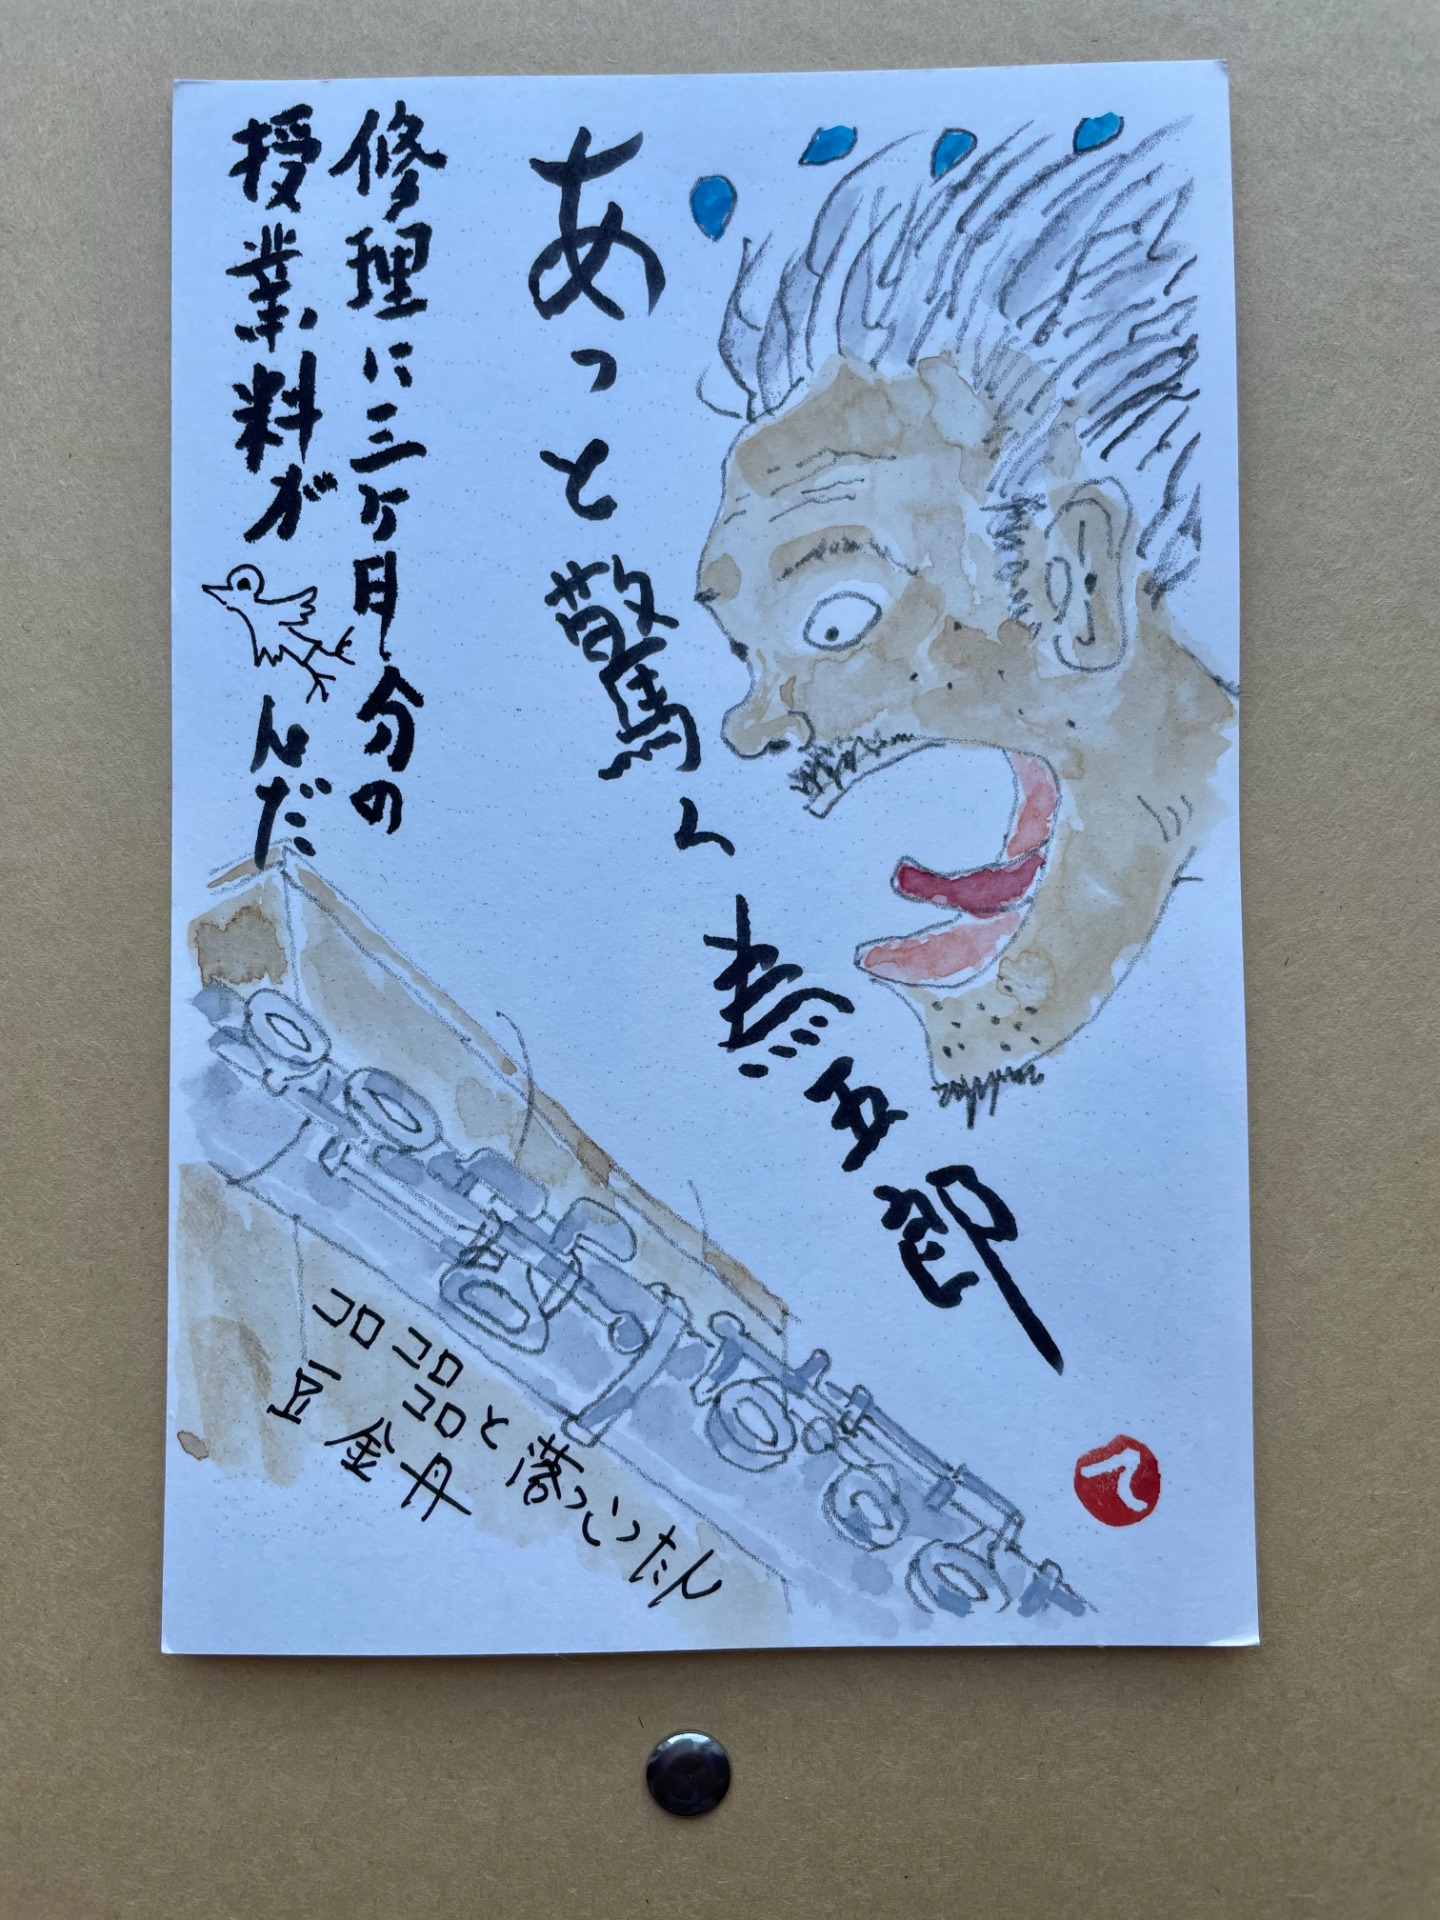 あっと驚く為五郎
修理に三ケ月分の
授業料がんだ
コロコロコロと落っこったん
豆金丹
て